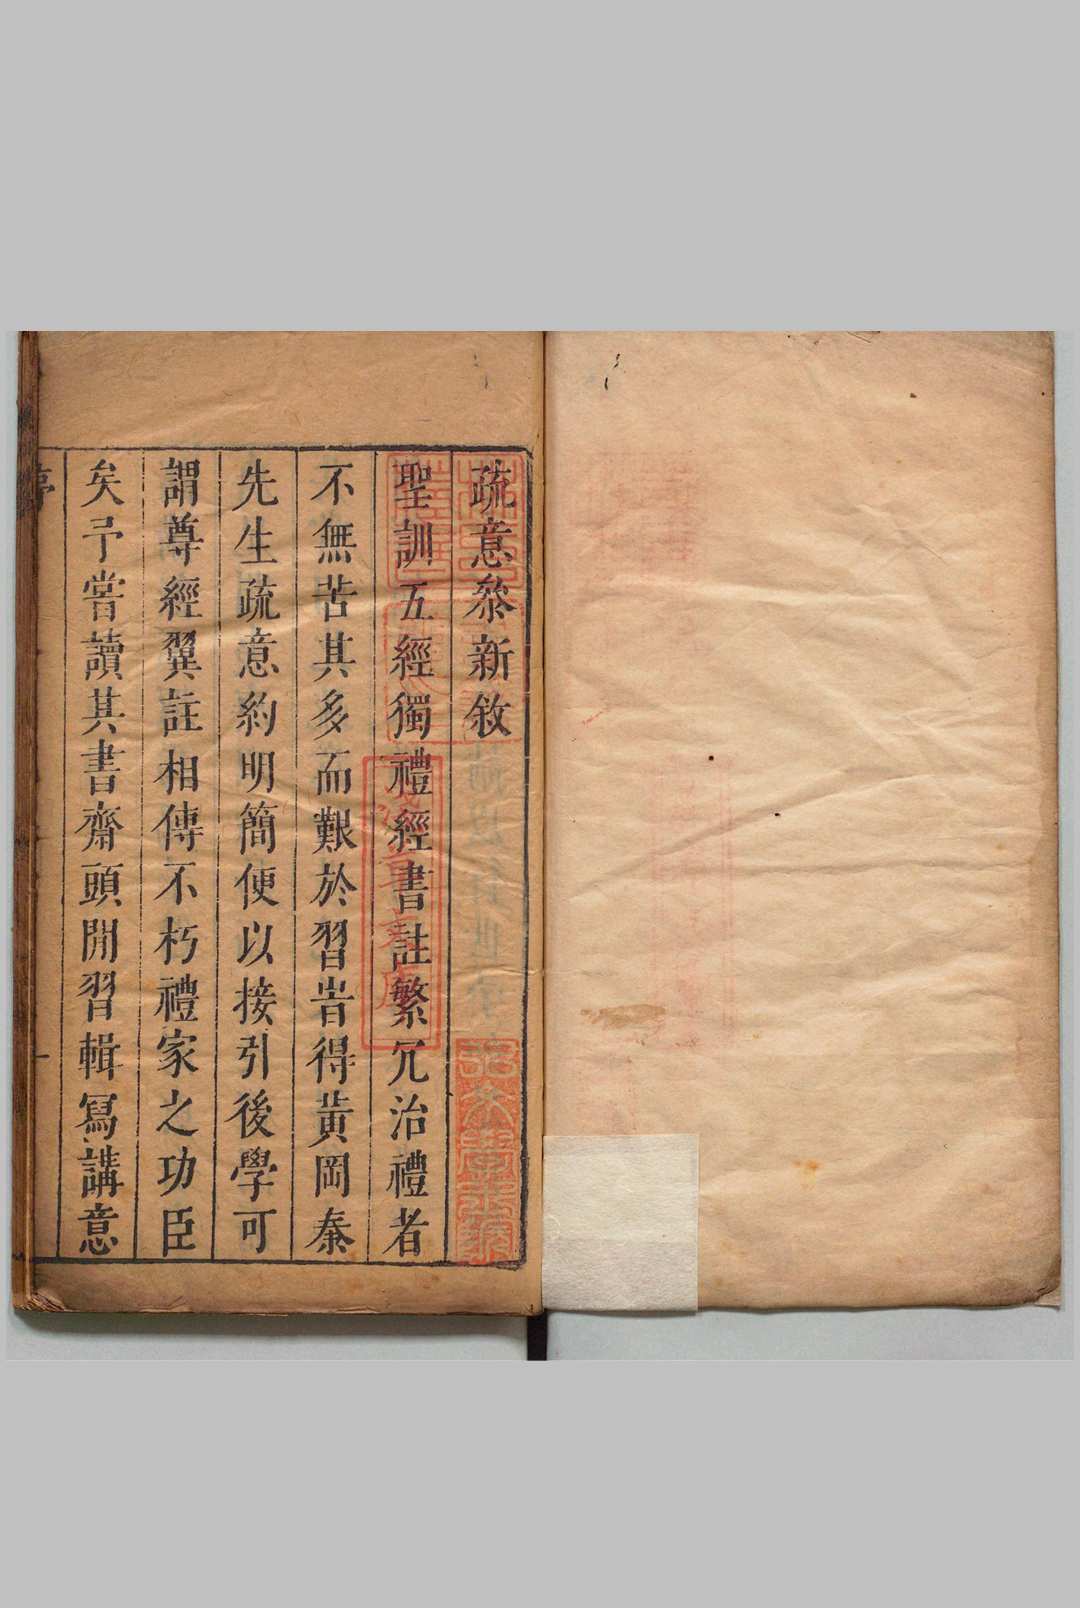 疏意叅新敘
聖訓五經獨禮經書註繁冗治禮者
不無苦其多而艱於習㫺得黄岡秦
先生疏意約明簡便以接引後學可
謂尊經翼註相傳不朽禮家之功臣
矣予嘗讀其書齋頭閒習輯冩講意
淺草文庫